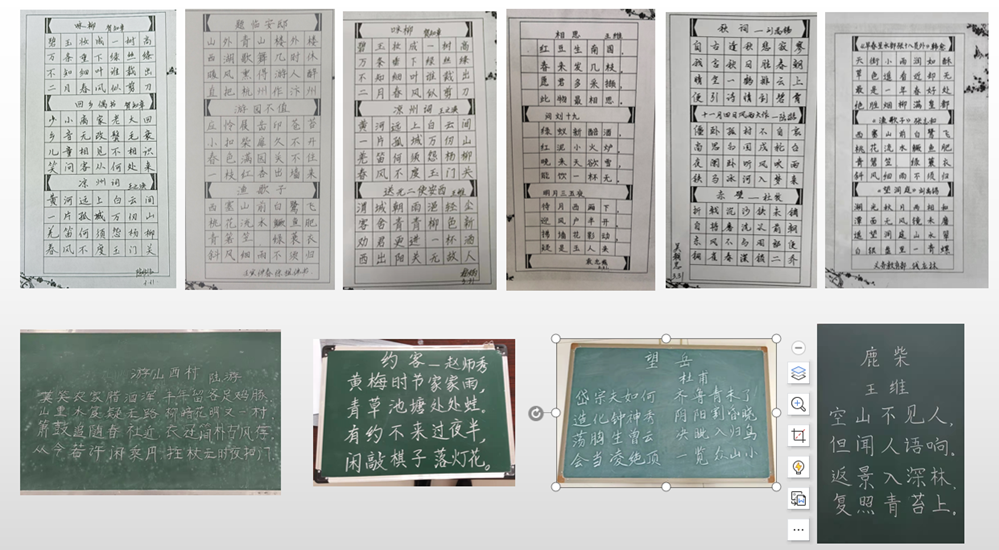 咏柳 贺知章
碧玉妆成一树高
万条垂下绿丝绦
不知细叶谁裁出
二月春风似剪刀
回乡偶书 贺知章
少小离家老大回
乡音无改鬓毛衰
儿童相见不相识
笑问客从何处来
凉州词 王之涣
黄河远上白云间
一片孤城万仞山
羌笛何须怨杨柳
春风不度玉门关
题临安邸
山外青山楼外楼
西湖歌舞几时休
暖风熏得游人醉
直把杭州作汴州
游园不值
应怜屐齿印苍苔
小扣柴扉久不开
春色满园关不住
一枝红杏出墙来
渔歌子
西塞山前白鹭飞
桃花流水鳜鱼肥
青箬笠 绿蓑衣
斜风细雨不须归
咏柳 贺知章
碧玉妆成一树高
万条垂下绿丝绦
不知细叶谁裁出
二月春风似剪刀
凉州词 王之涣
黄河远上白云间
一片孤城万仞山
羌笛何须怨杨柳
春风不度玉门关
送元二使安西 王维
渭城朝雨浥轻尘
客舍青青柳色新
劝君更进一杯酒
西出阳关无故人
相思 王维
红豆生南国，
春来发几枝。
愿君多采撷，
此物最相思。
问刘十九
绿蚁新醅酒，
红泥小火炉。
晚来天欲雪，
能饮一杯无。
明月三五夜
待月西厢下，
迎风户半开。
拂墙花影动，
疑是玉人来。
歌词—刘禹锡
自古逢秋悲寂寥
我言秋日胜春朝
晴空一鹤排云上
便引诗情到碧霄
十一月四日风雨大作—陆游
僵卧孤村不自哀
尚思为国戍轮台
夜阑卧听风吹雨
铁马冰河入梦来
赤壁—杜牧
折戟沉沙铁未销
自将磨洗认前朝
东风不与周郎便
铜雀春深锁二乔
《早春呈水部张十八员外》韩愈
天街小雨润如酥
草色遥看近却无
最是一年春好处
绝胜烟柳满皇都
《渔歌子》张志和
西塞山前白鹭飞
桃花流水鳜鱼肥
青箬笠 绿蓑衣
斜风细雨不须归
《望洞庭》刘禹锡
湖光秋月两相和
潭面无风镜未磨
遥望洞庭山水翠
白银盘里一青螺
游山西村 陆游
莫笑农家腊酒浑 丰年留客足鸡豚
山重水复疑无路 柳暗花明又一村
箫鼓追随春社近 衣冠简朴古风存
从今若许闲乘月 拄杖无时夜叩门
约客—赵师秀
黄梅时节家家雨，
青草池塘处处蛙。
有约不来过夜半，
闲敲棋子落灯花。
望岳
杜甫
岱宗夫如何 齐鲁青未了
造化钟神秀 阴阳割昏晓
荡胸生曾云 决眦入归鸟
会当凌绝顶 一览众山小
鹿柴
王维
空山不见人，
但闻人语响。
返景入深林，
复照青苔上。